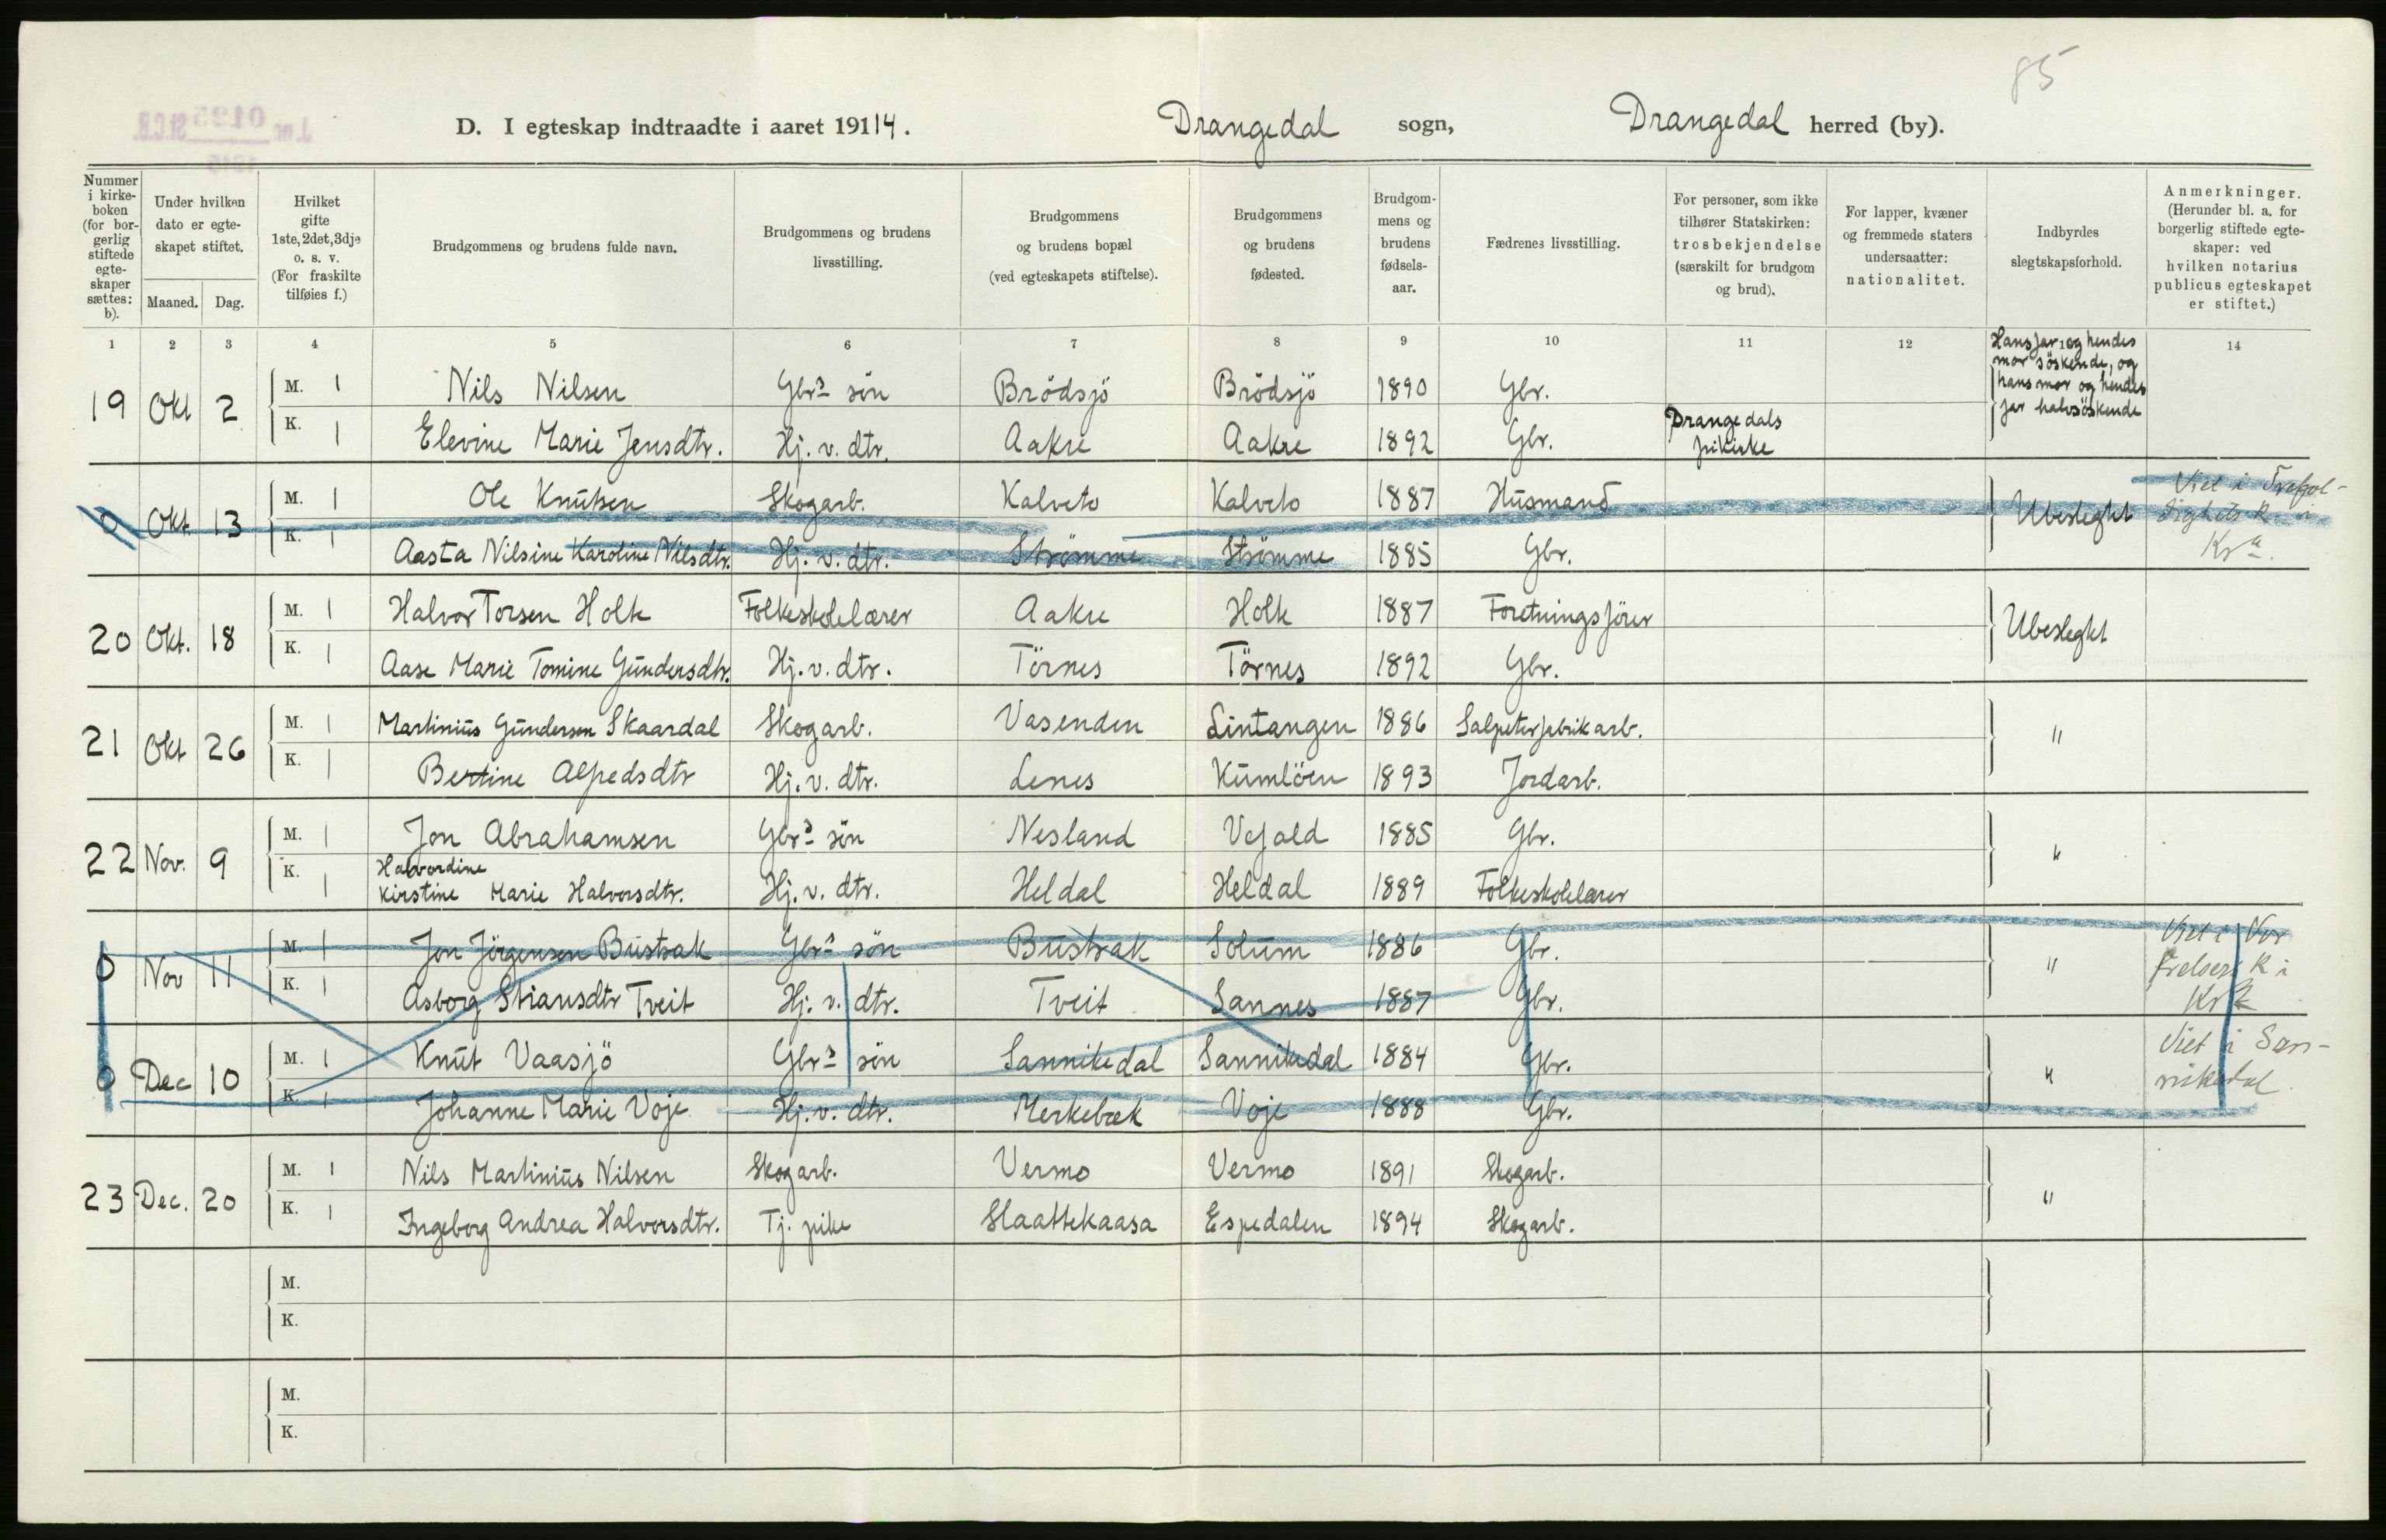 85
J.nr. 0195 St.C.B.
1915
D. I egteskap indtraadte i aaret 19114. Drangedal sogn, Drangedal herred (by).
Nummer i kirke-boken (for bor-gerlig stiftede egte-skaper sættes: b).
Under hvilken dato er egte-skapet stiftet.
Maaned. Dag.
Hvilket gifte 1ste, 2det, 3dje o. s. v. (For fraskilte tilføies f.)
Brudgommens og brudens fulde navn.
Brudgommens og brudens livsstilling.
Brudgommens og brudens bopæl (ved egteskapets stiftelse).
Brudgommens og brudens fødested.
Brudgom-mens og brudens fødsels-aar.
Fædrenes livsstilling.
For personer, som ikke tilhører Statskirken: trosbekjendelse (særskilt for brudgom og brud).
For lapper, kvæner og fremmede staters undersaatter: nationalitet.
Indbyrdes slegtskapsforhold.
Anmerkninger. (Herunder bl. a. for borgerlig stiftede egte-skaper: ved hvilken notarius publicus egteskapet er stiftet.)
1 2 3 4 5 6 7 8 9 10 11 12 14
19 Okt 2 M. 1 Nils Nilsen Gbrs søn Brödsjö Brödsjö 1890 Gbr. Hans far og hendes mor söskende, og hans mor og hendes far halvsöskende
K. 1 Elevine Marie Jensdtr. Hj. v. dtr. Aakre Aakre 1892 Gbr. Drangedals frikirke
0 Okt. 13 M. 1 Ole Knutsen Skogarb. Kalveto Kalveto 1887 Husmand Ubeslegtet Viet i Trefol-dighets k. i Kra.
K. 1 Aasta Nilsine Karoline Nilsdtr. Hj. v. dtr. Strömme Strömme 1885 Gbr.
20 Okt. 18 M. 1 Halvor Torsen Holte Folkeskolelærer Aakre Holte 1887 Foretningsförer Ubeslegtet
K. 1 Aase Marie Tomine Gundersdtr. Hj. v. dtr. Törnes Törnes 1892 Gbr.
21 Okt 26 M. 1 Martinius Gundersen Skaardal Skogarb. Vasenden Lintangen 1886 Salpeterfabrikarb. "
K. 1 Bertine Alfredsdtr Hj. v. dtr. Lenes Kumlöen 1893 Jordarb.
22 Nov. 9 M. 1 Jon Abrahamsen Gbrs søn Nesland Vefald 1885 Gbr. "
K. 1 Halvordine Kirstine Marie Halvorsdtr. Hj. v. dtr. Heldal Heldal 1889 Folkeskolelærer
0 Nov 11 M. 1 Jon Jörgensen Bustrak Gbrs søn Bustrak Solum 1886 Gbr. " Viet i Vor frelsers k i Kra
K. 1 Asborg Stiansdtr Tveit Hj. v. dtr. Tveit Sannes 1887 Gbr.
0 Dec 10 M. 1 Knut Vaasjö Gbrs søn Sannikedal Sannikedal 1884 Gbr. " Viet i San-nikedal.
K. 1 Johanne Marie Voje Hj. v. dtr. Merkebæk Voje 1888 Gbr.
23 Dec. 20 M. 1 Nils Martinius Nilsen Skogarb. Vermo Vermo 1891 Skogarb. "
K. 1 Ingeborg Andrea Halvorsdtr. Tj. pike Slaattekaasa Espedalen 1894 Skogarb.
M.
K.
M.
K.